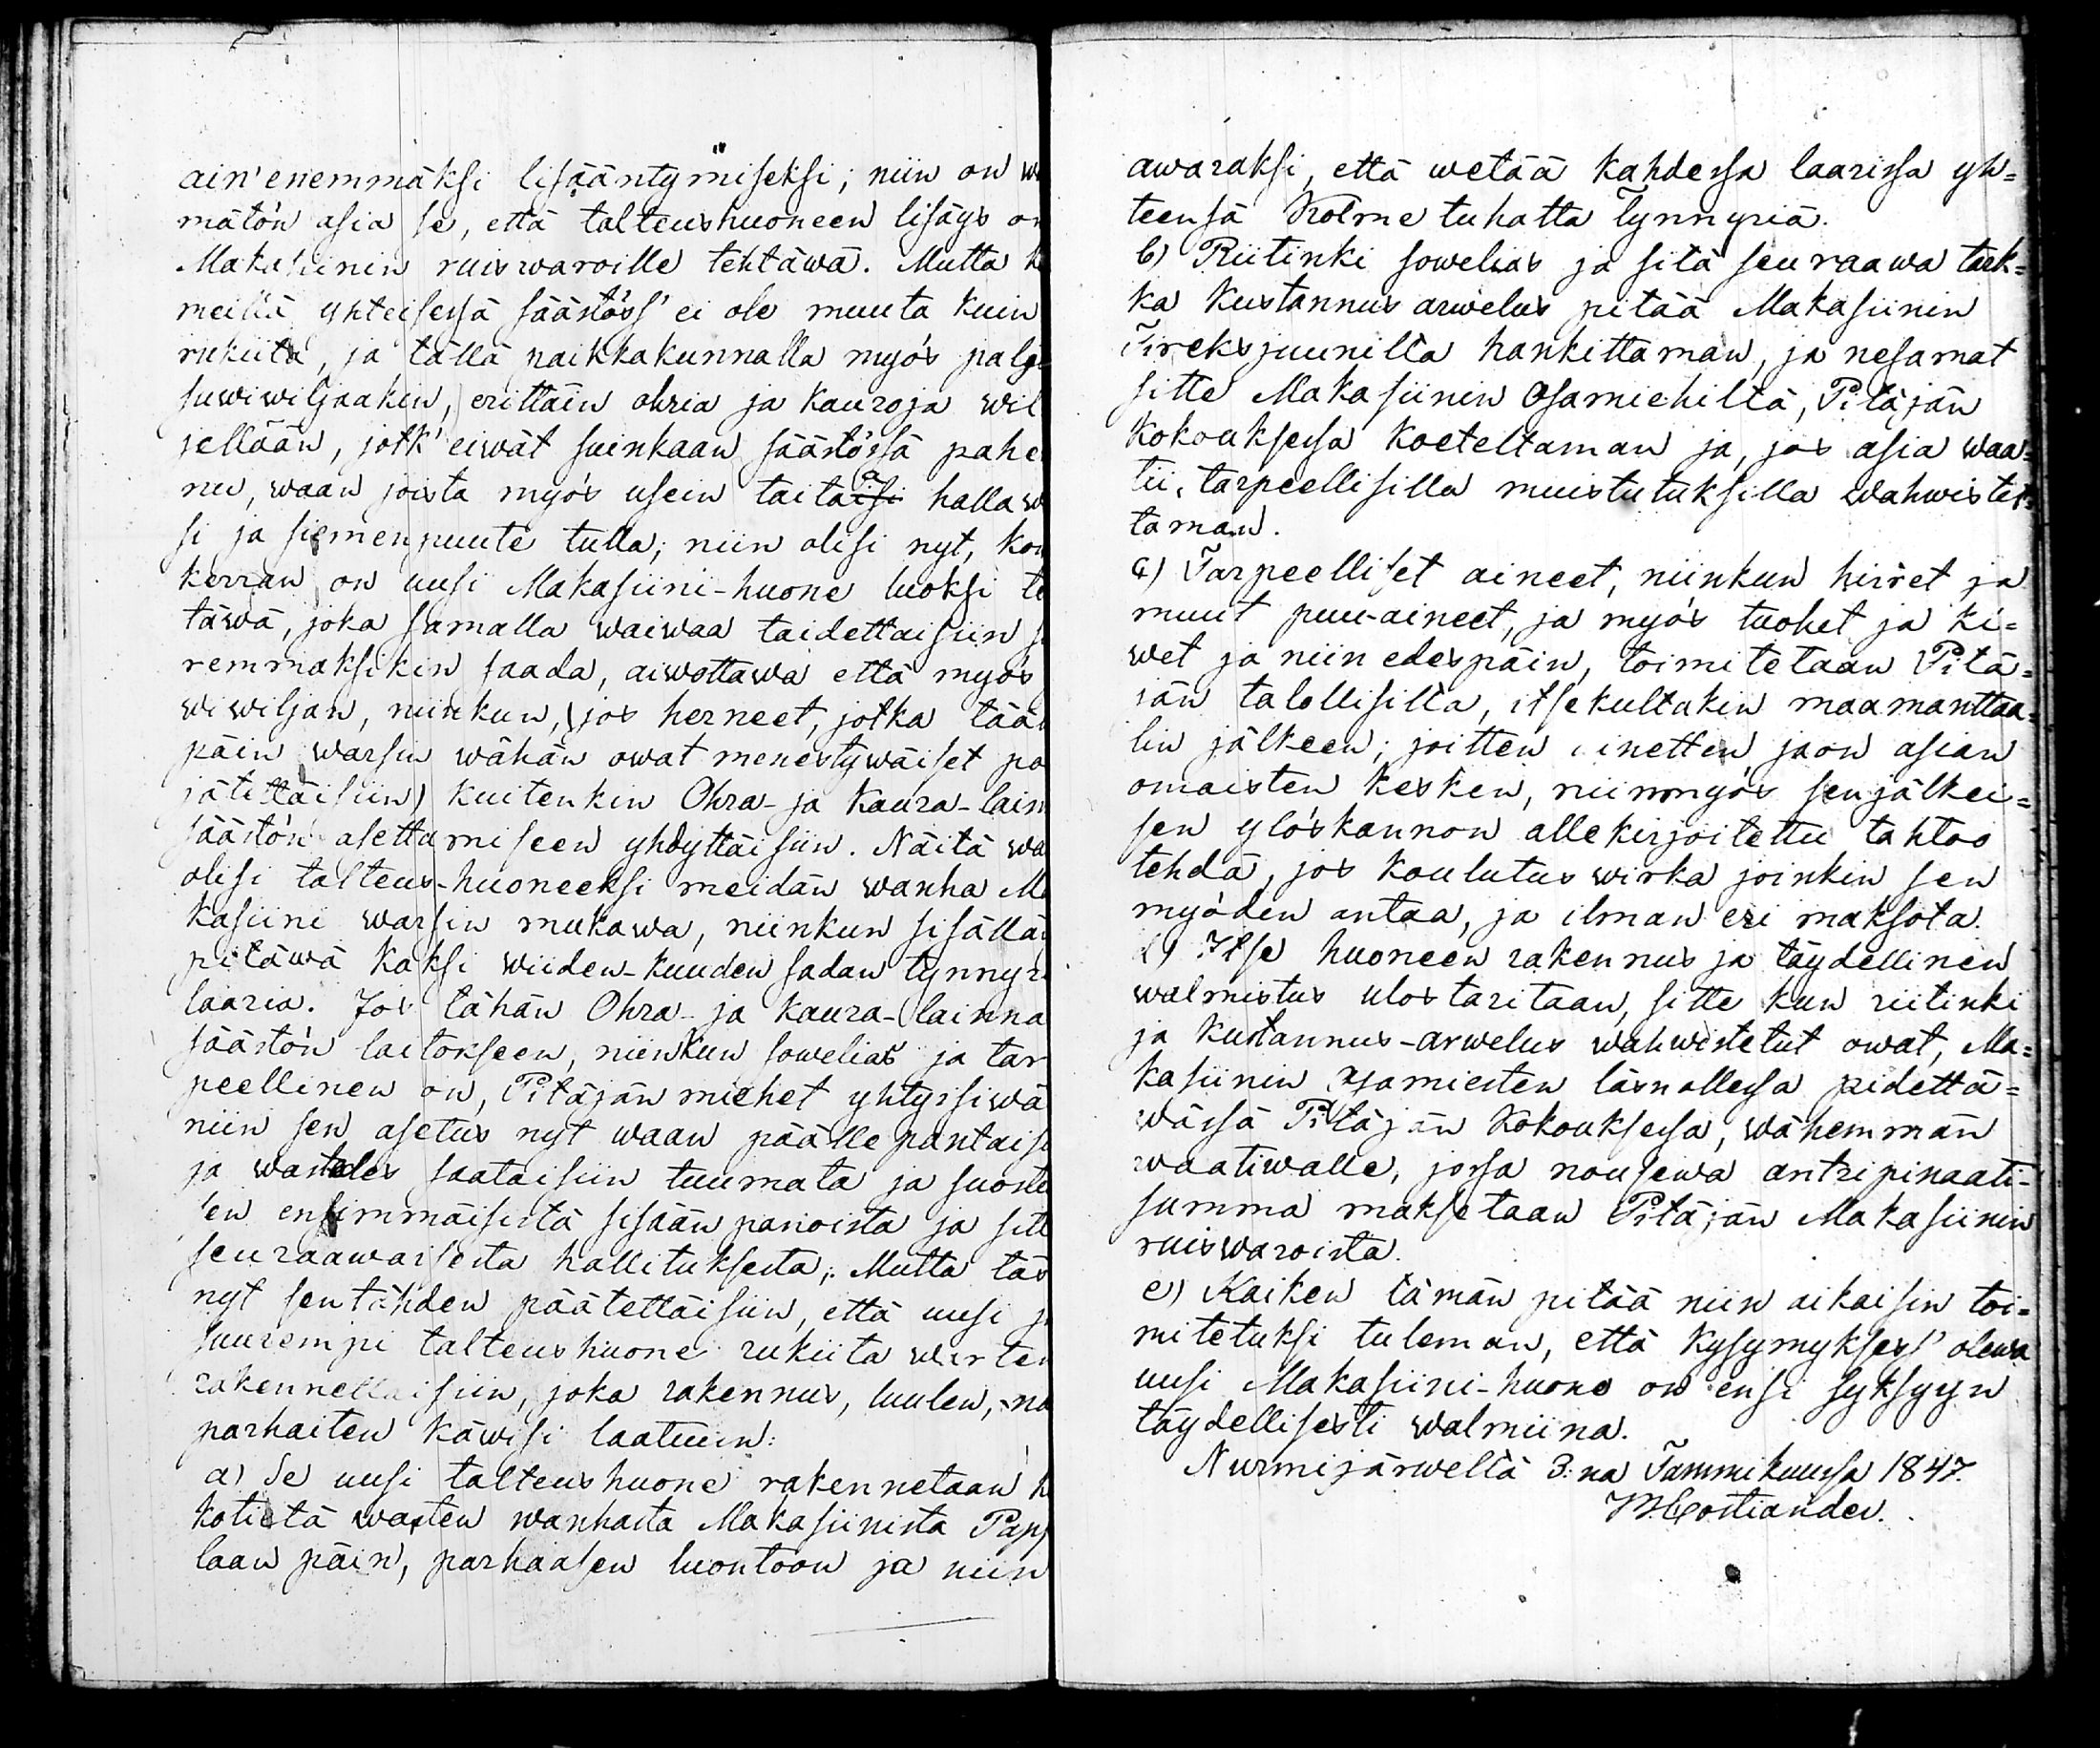 ain' enemmäksi lisääntymiseksi; niin on
mätön asia se, että talteushuoneen lisäys on
Makasiinin ruiswaroille tehtäwä. Mutta
meillä yhteisessä säästöss' ei ole muuta kuin
rukiita, ja tällä paikkakunnalla myös palj
suwiwiljaakin, erittäin ohria ja kauroja wil
jellään, jotk' eiwät suinkaan säästössä pahe
nu, waan joista myös usein taitaa halla
si ja siemenpuute tulla; niin olisi nyt, kos
kerran on uusi Makasiini-huone luoksi te
täwä, joka samalla waiwaa taidettaisiin su
remmaksikin saada, aiwottawa että myös
wiwiljan, niinkun, (jos herneet, jotka tään
päin warsin wähän owat menestywäiset po
jätettäisiin) kuitenkin Ohra- ja Kaura-lain
säästön asettamiseen yhdyttäisiin. Näitä wa
olisi talteus-huoneeksi meidän wanha Ma
kasiini warsin mukawa, niinkun sisällän
pitäwä kaksi wiiden-kuuden sadan tynnyri
laaria. Jos tähän Ohra- ja kaura-lainna
säästön laitokseen, niinkun sowelias ja tar
peellinen on, Pitäjän miehet yhtyisiwä
niin sen asetus nyt waan päälle pantaisi
ja wastedes saataisiin tuumata ja suostu
sen ensimmäisistä sisään panoista ja sitt
seuraawaisesta hallituksesta; Mutta täs
nyt sentähden päätettäisiin, että uusi ja
suurempi talteushuone rukiita warten
rakennettaisiin, joka rakennus, luulen,
parhaiten käwisi laatuun:
a) Se uusi talteushuone rakennetaan
kotistä wasten wanhasta Makasiinista Papp
laan päin, parhaasen luontoon ja niin
awaraksi, että wetää kahdessa laarissa yh=
teensä Kolme tuhatta Tynnyriä.
b) Riitinki sowelias ja sitä seuraawa tark=
ka Kustannus arwelus pitää Makasiinin
Tireksjuunilta hankittaman, ja nesamat
sitte Makasiinin Osamiehiltä, Pitäjän
Kokouksessa Koeteltaman ja, jos asia waa=
tii, tarpeellisilla muistutuksilla wahwistet=
taman.
c) Tarpeelliset aineet, niinkun hirret ja
muut puu-aineet, ja myös tuohet ja ki=
wet ja niin edespäin, toimitetaan Pitä=
jän talollisilta, itsekultakin maamanttaa=
lin jälkeen; joitten ainetten jaon asian
omaisten kesken, niinmyös senjälkei=
sen ylöskannon allekirjoitettu tahtoo
tehdä, jos koulutus wirka joinkin sen
myöden antaa, ja ilman eri maksota.
d) Itse huoneen rakennus ja täydellinen
walmistus ulostaritaan, sitte kun riitinki
ja kustannus-arwelus wahwistetut owat, Ma=
kasiinin osamiesten läsnollessa pidettä=
wässä Pitäjän Kokouksessa, wähemmän
waatiwalle, jossa nousewa antripinaati-
summa maksetaan Pitäjän Makasiinin
ruiswaroista.
e) Kaiken tämän pitää niin aikaisin toi=
mitetuksi tuleman, että Kysymyksess' olewa
uusi Makasiini-huone on ensi syksyyn
täydellisesti walmiina.
Nurmijärwellä 3:na Tammikuussa 1847.
Costiander.